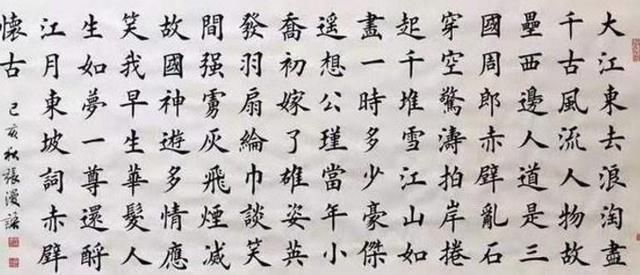 大江東去浪淘盡
千古風流人物故
壘西邊人道是三
國周郎赤壁亂石
穿空驚濤拍岸捲
起千堆雪江山如
畫一時多少豪傑
遥想公瑾當年小
喬初嫁了雄姿英
發羽扇綸巾談笑
間强虜灰飛煙滅
故國神遊多情應
笑我早生華髮人
生如夢一尊還酹
江月東坡詞赤壁
懷古
己亥秋張漫